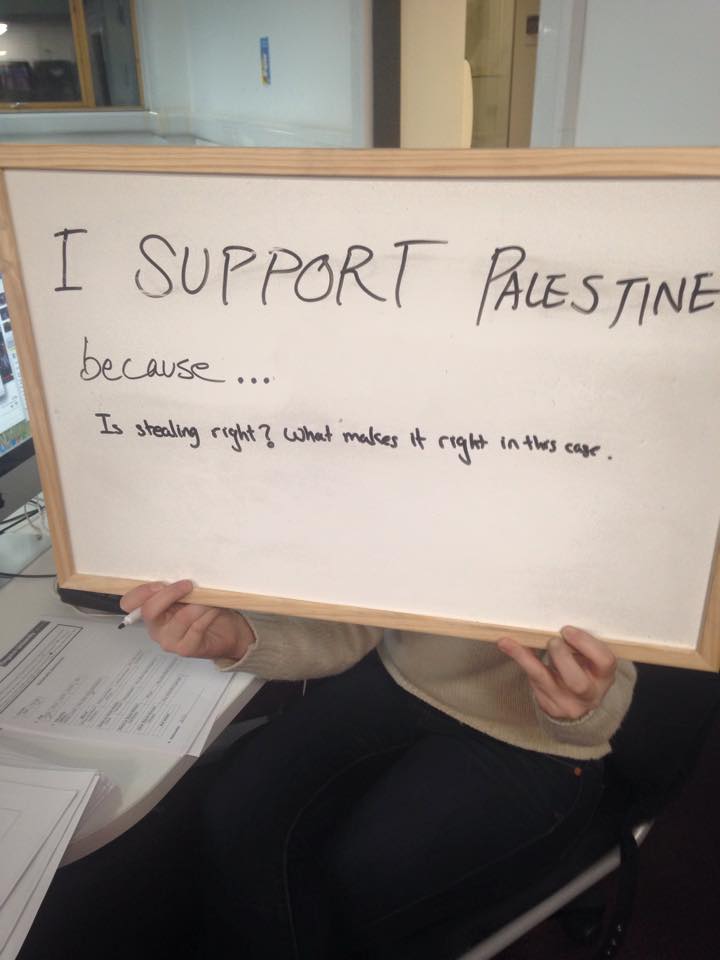 I SUPPORT PALESTINE
because...
Is stealing right? What makes it right in this case.